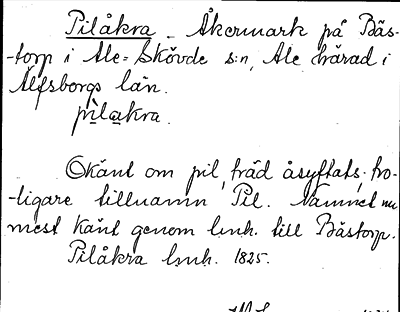 Pilåkra - Åkermark på Bäs-
-torp i Ale-Skövde s:n, Ale härad i
Älfsborgs län.
pìlakra.
Okänt om pil, träd åsyftats, tro-
-ligare tillnamn Pil. Namnet nu
mest känt genom lmh. till Bästorp.
Pilåkra lmh. 1825.